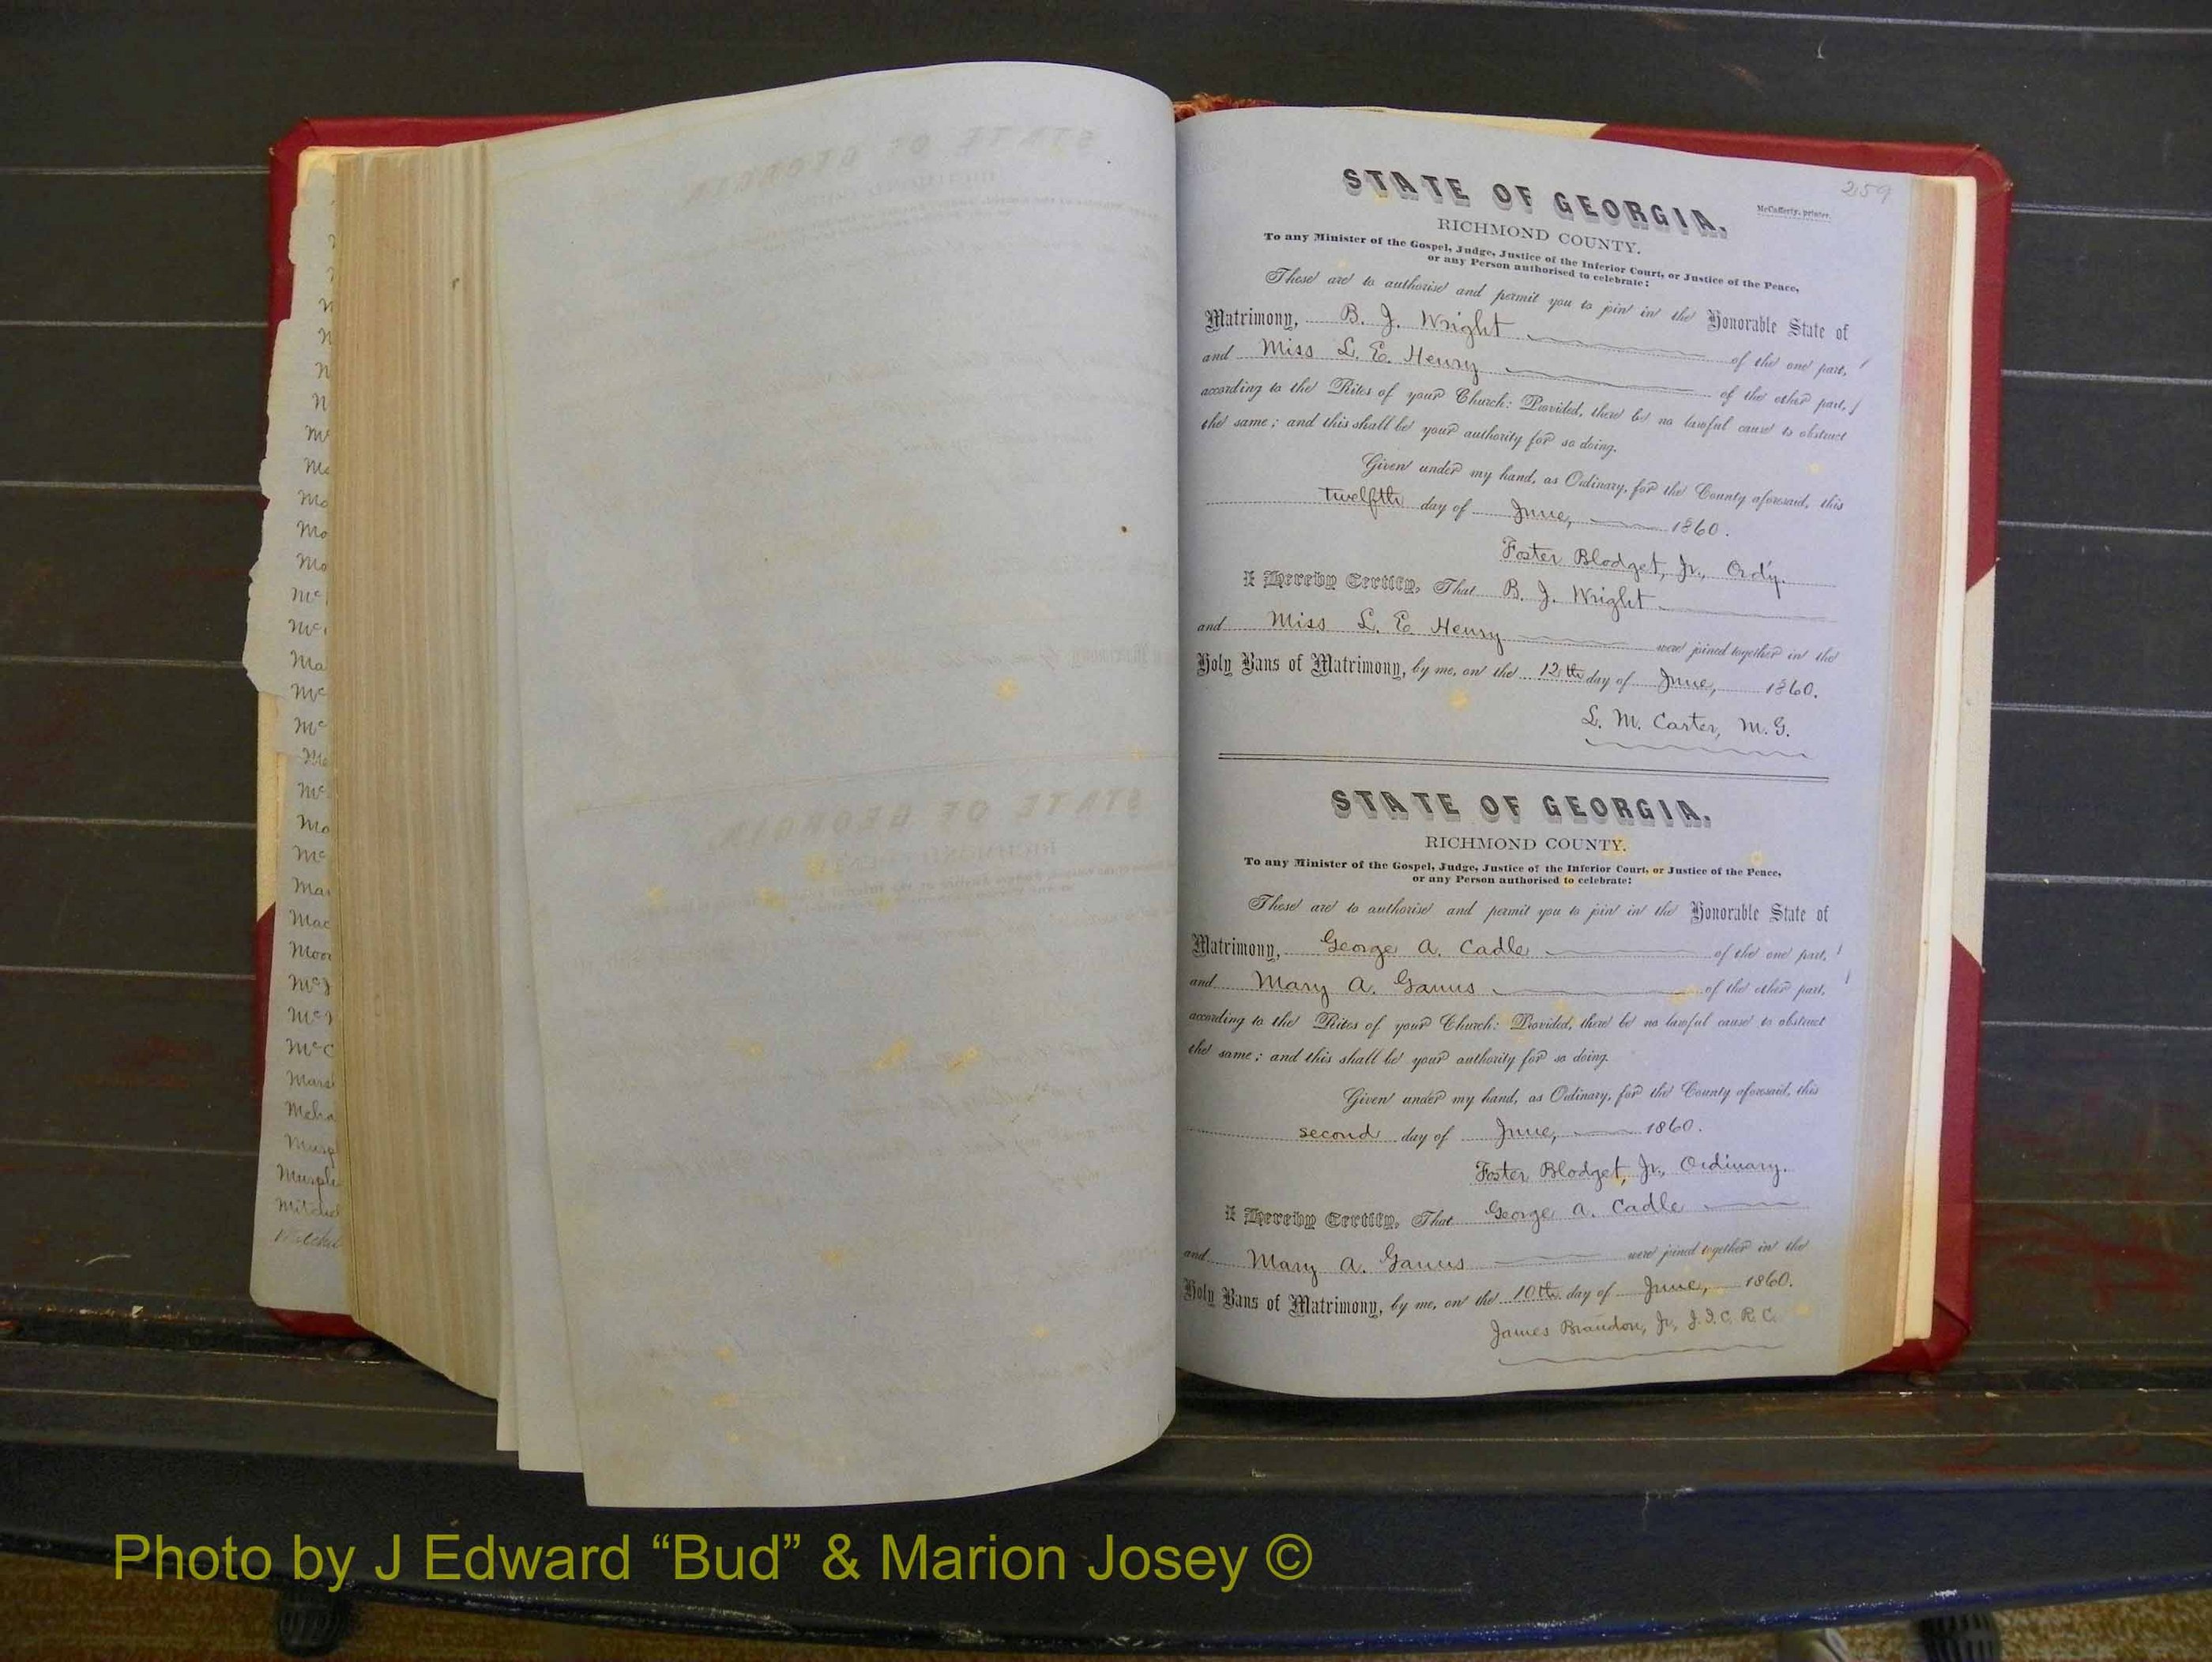 259
McCafferty, printer.
STATE OF GEORGIA.
RICHMOND COUNTY.
To any Minister of the Gospel, Judge, Justice of the Inferior Court, or Justice of the Peace,
or any Person authorised to celebrate:
These are to authorise and permit you to join in the Honorable State of
Matrimony, B. J. Wright of the one part,
and Miss L. E. Henry of the other part,
according to the Rites of your Church: Provided, there be no lawful cause to obstruct
the same; and this shall be your authority for so doing.
Given under my hand, as Ordinary, for the County aforesaid, this
twelfth day of June, 1860.
Foster Blodget, Jr., Ordy.
I Hereby Certify, That B. J. Wright
and Miss L. E. Henry were joined together in the
Holy Bans of Matrimony, by me, on the 12th day of June, 1860.
L. M. Carter, M. G.
STATE OF GEORGIA.
RICHMOND COUNTY.
To any Minister of the Gospel, Judge, Justice of the Inferior Court, or Justice of the Peace,
or any Person authorised to celebrate:
These are to authorise and permit you to join in the Honorable State of
Matrimony, George A. Cadle of the one part,
and Mary A. Ganus of the other part,
according to the Rites of your Church: Provided, there be no lawful cause to obstruct
the same; and this shall be your authority for so doing.
Given under my hand, as Ordinary, for the County aforesaid, this
second day of June, 1860.
Foster Blodget, Jr., Ordinary.
I Hereby Certify, That George A. Cadle
and Mary A. Ganus were joined together in the
Holy Bans of Matrimony, by me, on the 10th day of June, 1860.
James Brandon, Jr., J. I. C. R. C.
Photo by J Edward “Bud” & Marion Josey ©